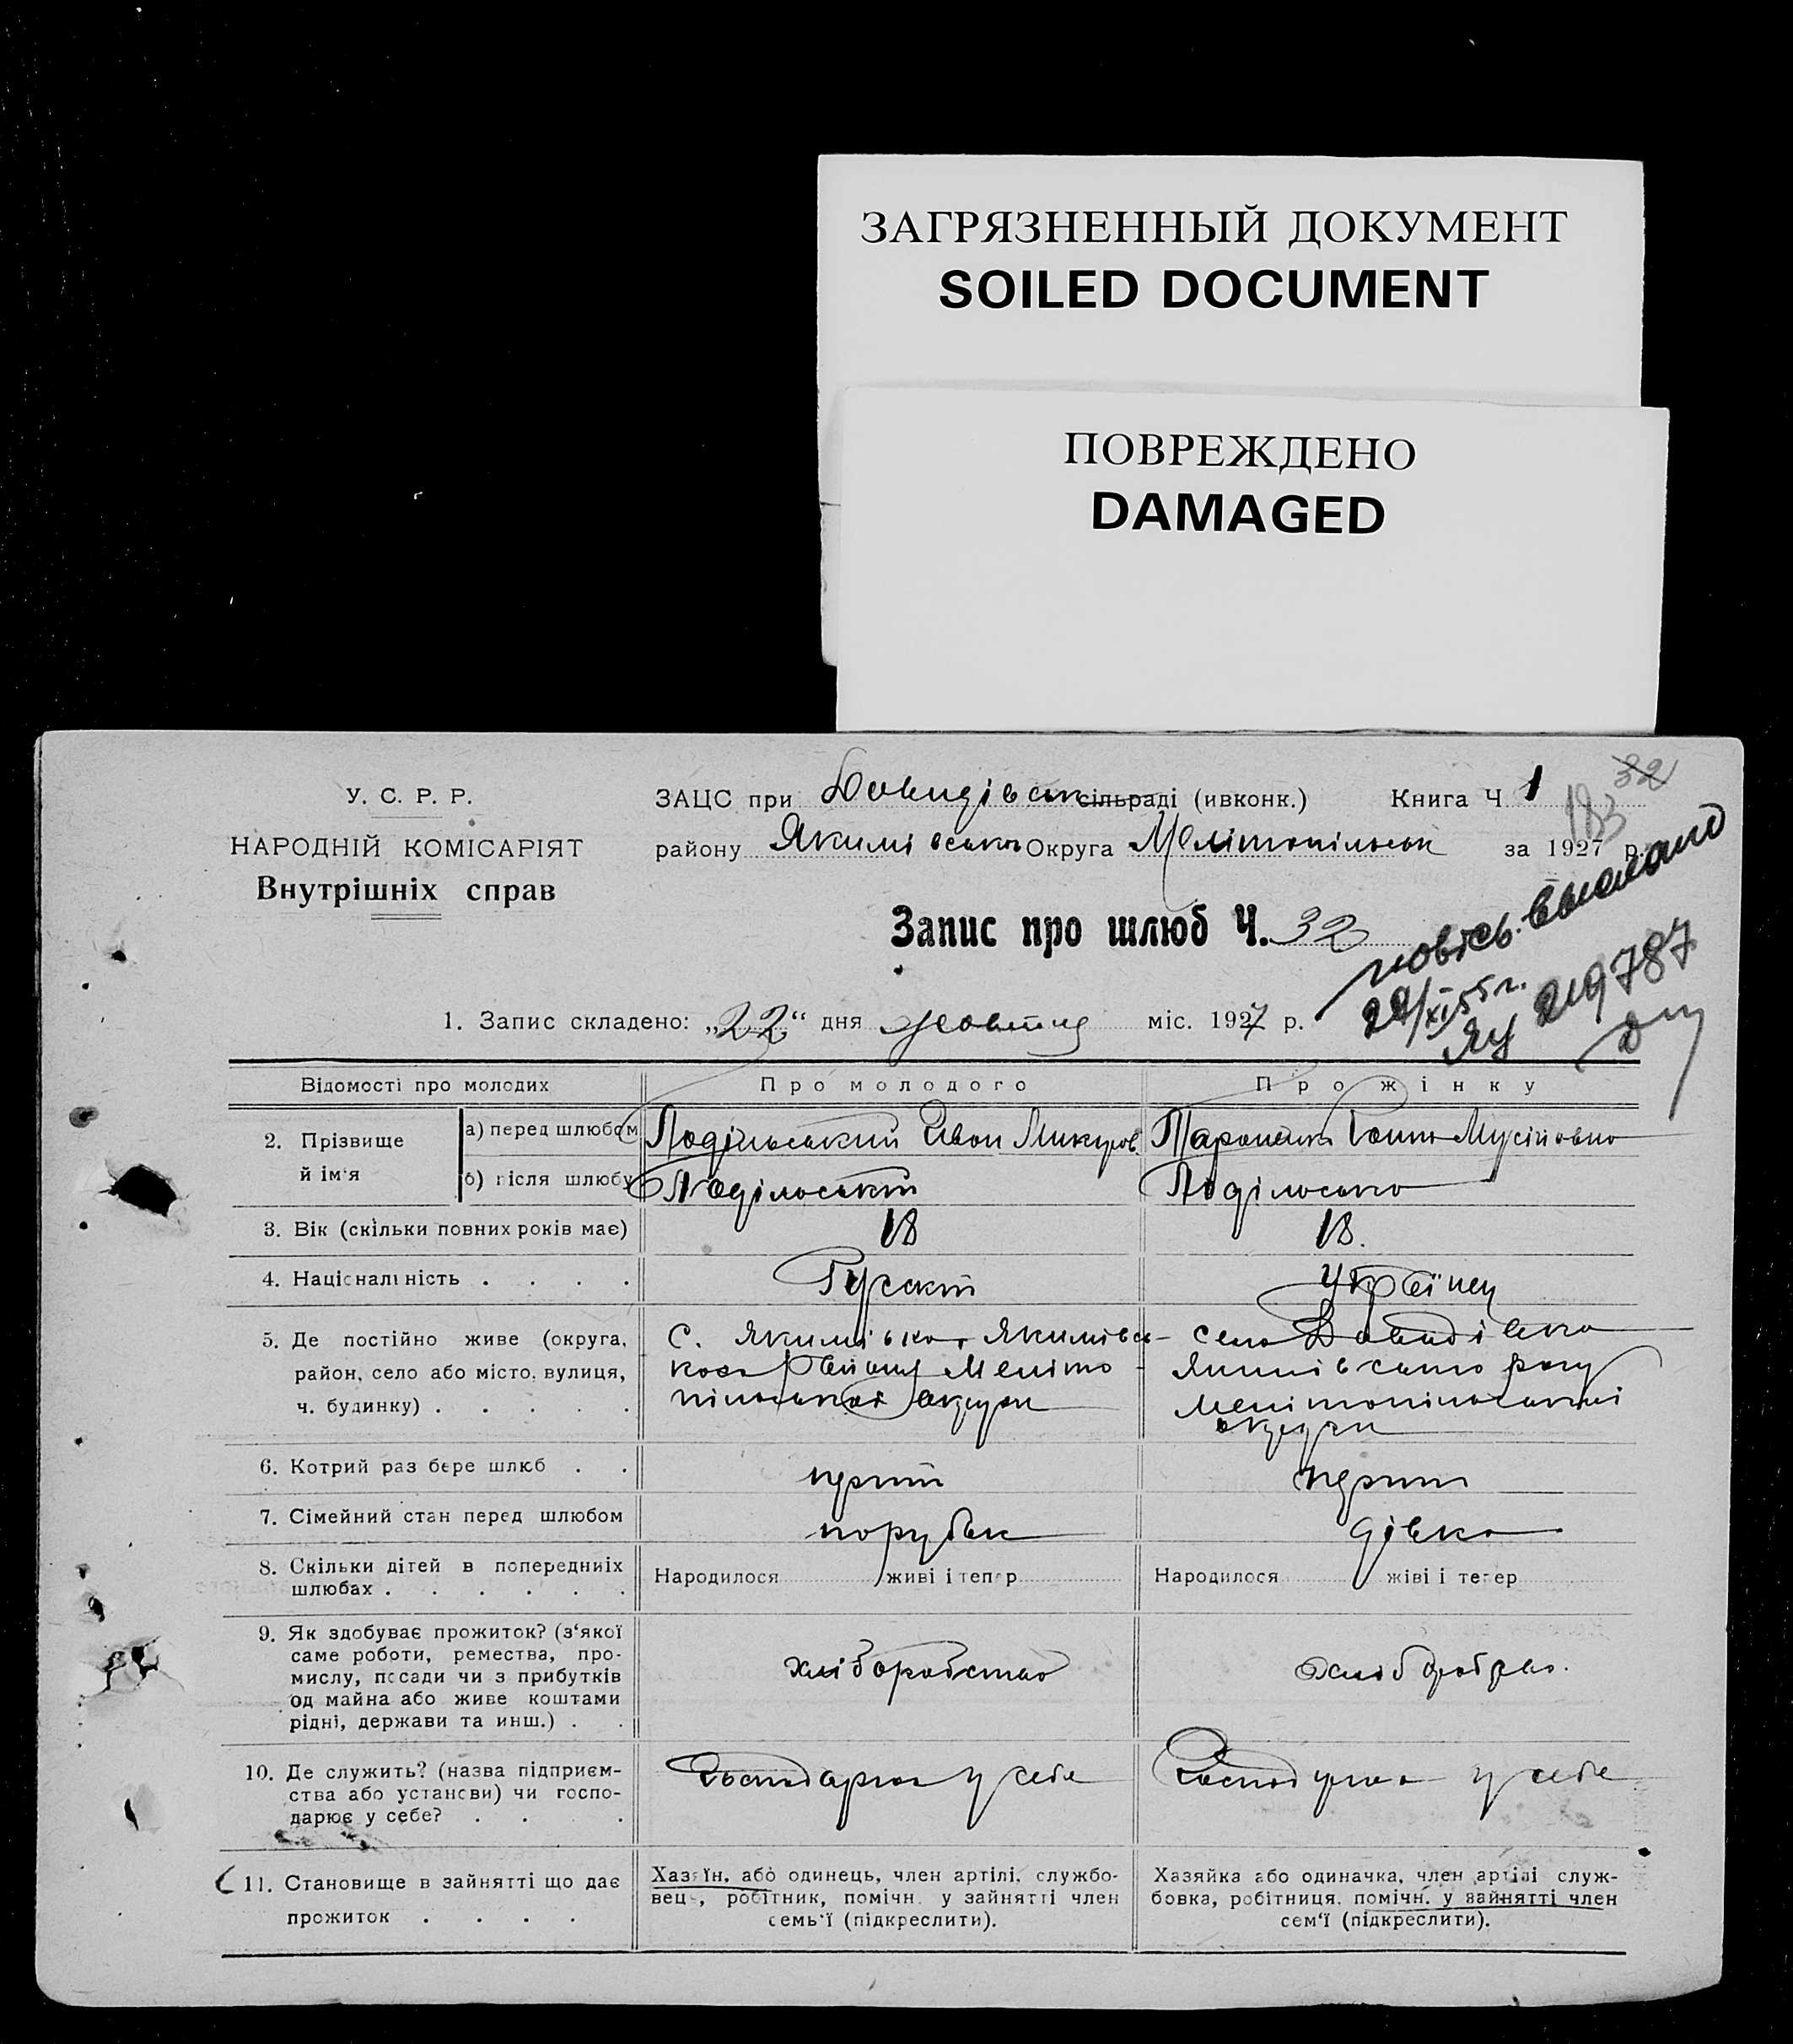 ЗАГРЯЗНЕННЫЙ ДОКУМЕНТ
SOILED DOCUMENT
ПОВРЕЖДЕНО
DAMAGED
У. С. Р. Р.
НАРОДНІЙ КОМІСАРІЯТ
Внутрішніх справ
ЗАЦС при Давидівськ сільраді (ивконк.) Книга Ч 1
32
183
району Якимівсько Округа Мелітопільськ за 1927 р.
Запис про шлюб Ч. 32
выслано
219787
1. Запис складено: „22“ дня жовтня міс. 1927 р.
Відомості про молодих Про молодого Про жінку
2. Прізвище й ім'я
а) перед шлюбом Подільський Иван Микитов Тараненко Мусійовна
б) після шлюбу Подільський Подільська
3. Вік (скільки повних років має) 18 18.
4. Національність . . . . Руський Українец
5. Де постійно живе (округа, С. Якимівка, Якимівсь- село Давидівка
район, село або місто, вулиця, кого району Меліто- Якимівського рагу
ч. будинку) . . . . . пільської округи Мелітопільської
округи
6. Котрий раз бере шлюб . . перший перший
7. Сімейний стан перед шлюбом парубок дівка
8. Скільки дітей в попередниіх
шлюбах . . . . . . Народилося живі і тепер Народилося жіві і тепер
9. Як здобуває прожиток? (з'якої
саме роботи, ремества, про-
мислу, посади чи з прибутків хліборобство
од майна або живе коштами
рідні, держави та инш.) . .
10. Де служить? (назва підприєм-
ства або установи) чи госпо- у себе у себе
дарює у себе? . . . .
11. Становище в зайнятті що дає
прожиток . . . .
Хазяїн, або одинець, член артілі, службо-
вець, робітник, помічн. у зайнятті член
семь'ї (підкреслити).
Хазяйка або одиначка, член артілі служ-
бовка, робітниця, помічн. у зайнятті член
сем'ї (підкреслити).